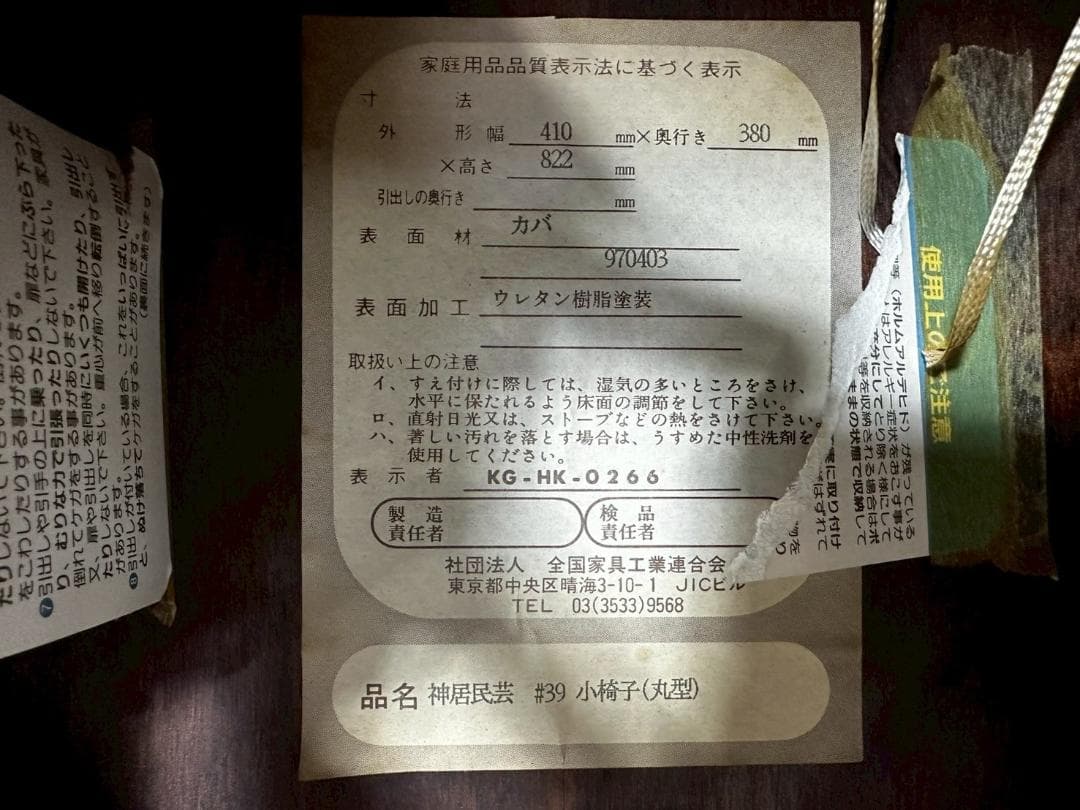 家庭用品品質表示法に基づく表示
寸法
外形 幅 410 mm×奥行き 380 mm
×高さ 822 mm
引出しの奥行き mm
表面材 カバ
970403
表面加工 ウレタン樹脂塗装
取扱い上の注意
イ、すえ付けに際しては、湿気の多いところをさけ、
水平に保たれるよう床面の調節をして下さい。
ロ、直射日光又は、ストーブなどの熱をさけて下さい。
ハ、著しい汚れを落とす場合は、うすめた中性洗剤を
使用してください。
表示者 KG-HK-0266
製造責任者
検品責任者
社団法人 全国家具工業連合会
東京都中央区晴海3-10-1 JICビル
TEL 03(3533)9568
品名 神居民芸 #39 小椅子(丸型)
をこわしたりする事があります。
❼引出しや引手の上に乗ったり、扉などにぶら下った
り、むりな力で引張ったりしないで下さい。家具が
倒れてケガをする事があります。
又、扉や引出しを同時にいくつも開けたり、引出し
たりしないで下さい。重心が前へ移り転倒すること
があります。
❽引出しが付いている場合、これをいっぱいに引出す
と、ぬけ落ちてケガをすることがあります。
(裏面に続きます)
使用上の
注意
(ホルムアルデヒド)が残っている
はアレルギー症状をおこす事が
充分にしてとり除く様にして
等を収納される場合は木
ままの状態で収納して
に取り付け
はずれて